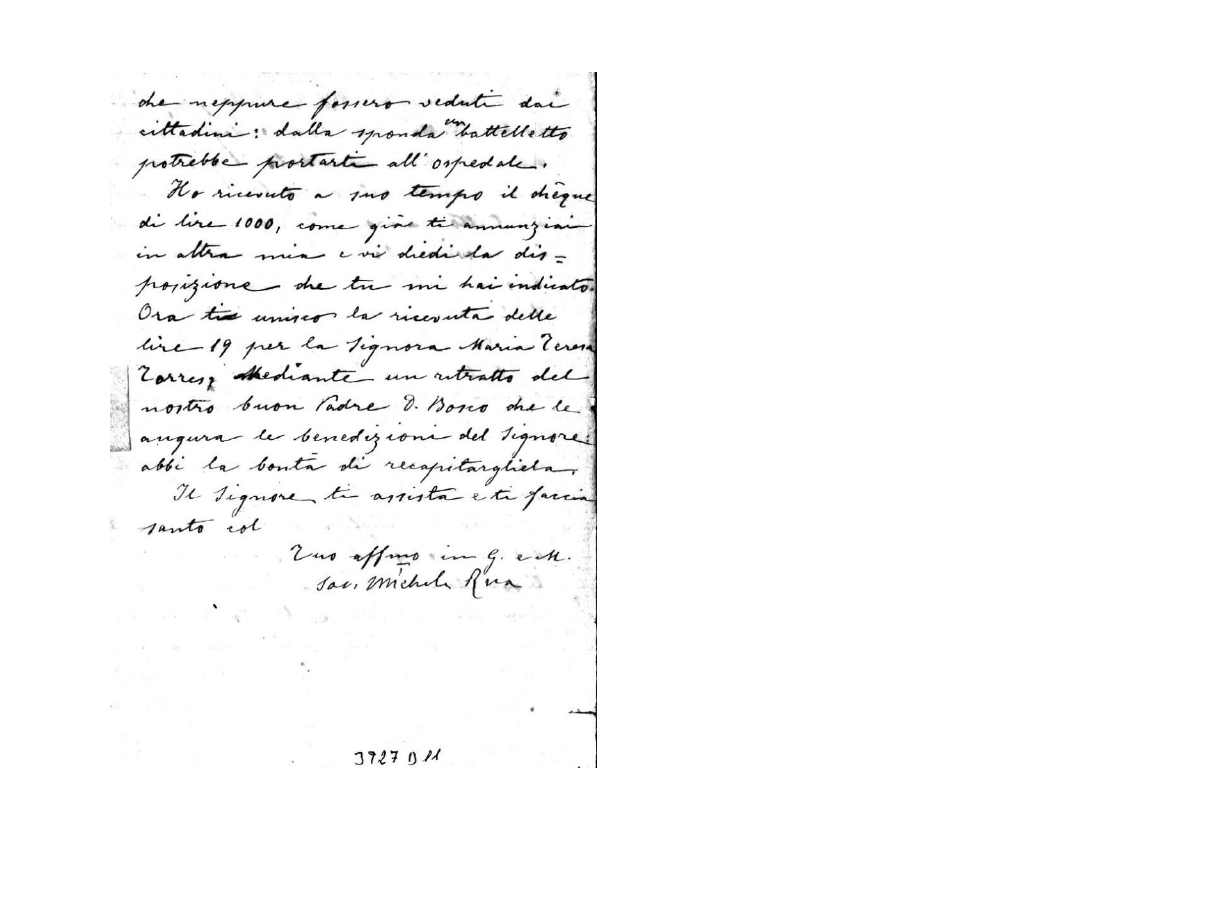 che neppure fossero veduti dai
cittadini: dalla sponda un battelletto
potrebbe portarti all'ospedale.
Ho ricevuto a suo tempo il chèque
di lire 1000, come già ti annunziai
in altra mia e vi diedi la dis=
posizione che tu mi hai indicato.
Ora ti unisco la ricevuta delle
lire 19 per la Signora Maria Teresa
Torres, Mediante un ritratto del
nostro buon Padre D. Bosco che le
augura le benedizioni del Signore:
abbi la bontà di recapitargliela.
Il Signore ti assista e ti faccia
santo col
Tuo affmo in G. e M.
Sac. Michele Rua
3927 D 11